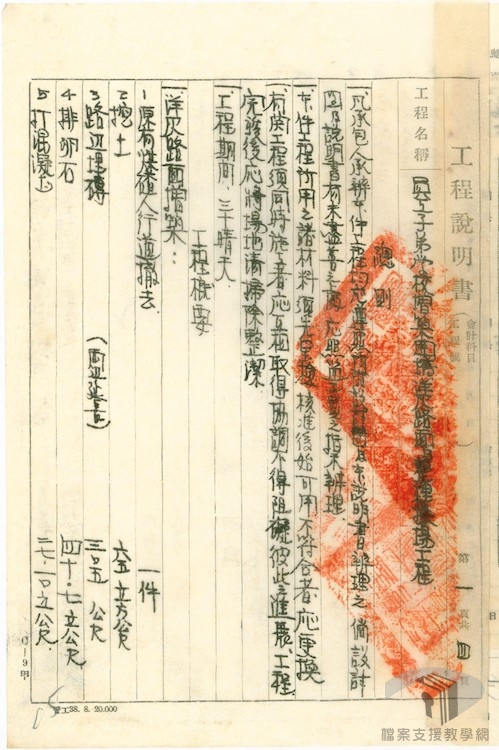 工程說明書
會計科目
工程名稱
員工子弟學校增築南端洋灰路面暨運動場工程
第一頁共四頁
總則
一、凡承包人承辦本件工程均應遵照所附設計圖及本說明書辦理之倘設計
圖及說明書有未盡善之處應照
之指示辦理
一、本件工程所用之諸材料須先呈
核准後始可用不符合者應更換
一、有關工程須同時施工者應互相取得協調不得阻礙彼此之進展、工程
完竣後應將場地清掃除整潔
一、工程期間、三十晴天
工程概要
一、洋灰路面增築：
1、原有煤渣人行道撤去 一件
2、挖土 六五立方公尺
3、路边埋磚（兩边並書） 三〇五公尺
4、排卵石 四十・七立公尺
5、打混凝土 二七・一〇立公尺
工38. 8. 20.000
檔案支援教學網